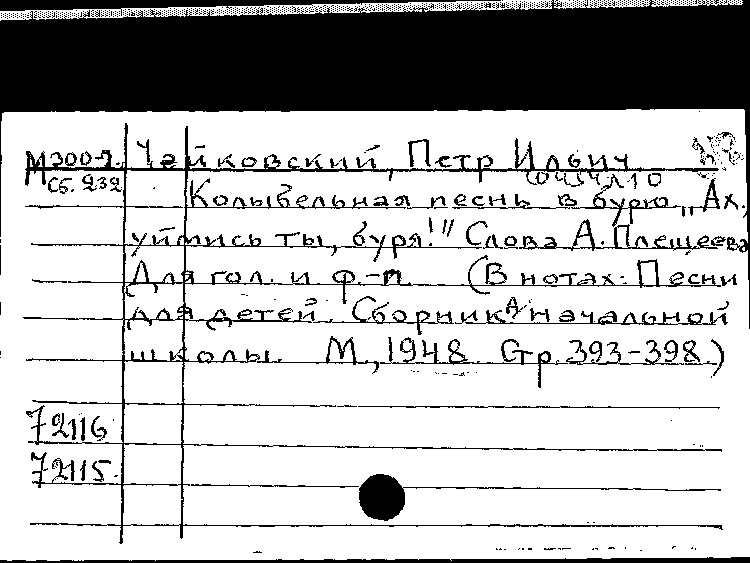 М300-2. Чайковский, Петр Ильич
Сб. 232
Колыбельная песнь в бурю „Ах,
уймись ты, буря!" Слова А. Плещеева
Для гол. и ф.-п. (В нотах: Песни
для детей. Сборник д/начальной
школы. М., 1948. Стр. 393-398.)
72116
72115